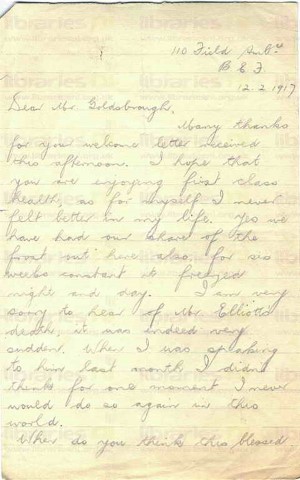 110 Field Amb.
B E F
12.2.1917
Dear Mr Goldsbrough,
Many thanks
for you welcome letter received
this afternoon. I hope that
you are enjoying first class
health, as for myself I never
felt better in my life. Yes we
have had our share of the
frost out here also, for six
weeks constant it freezed
night and day. I am very
sorry to hear of Mr. Elliotts
death, it was indeed very
sudden. When I was speaking
to him last month I didn
think for one moment I never
would do so again in this
world.
When do you think this blessed